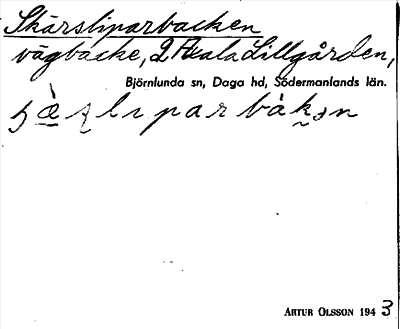 Skärsliparbacken
vägbacke, Lillgården,
Björnlunda sn, Daga hd, Södermanlands län.
ARTUR OLSSON 1943